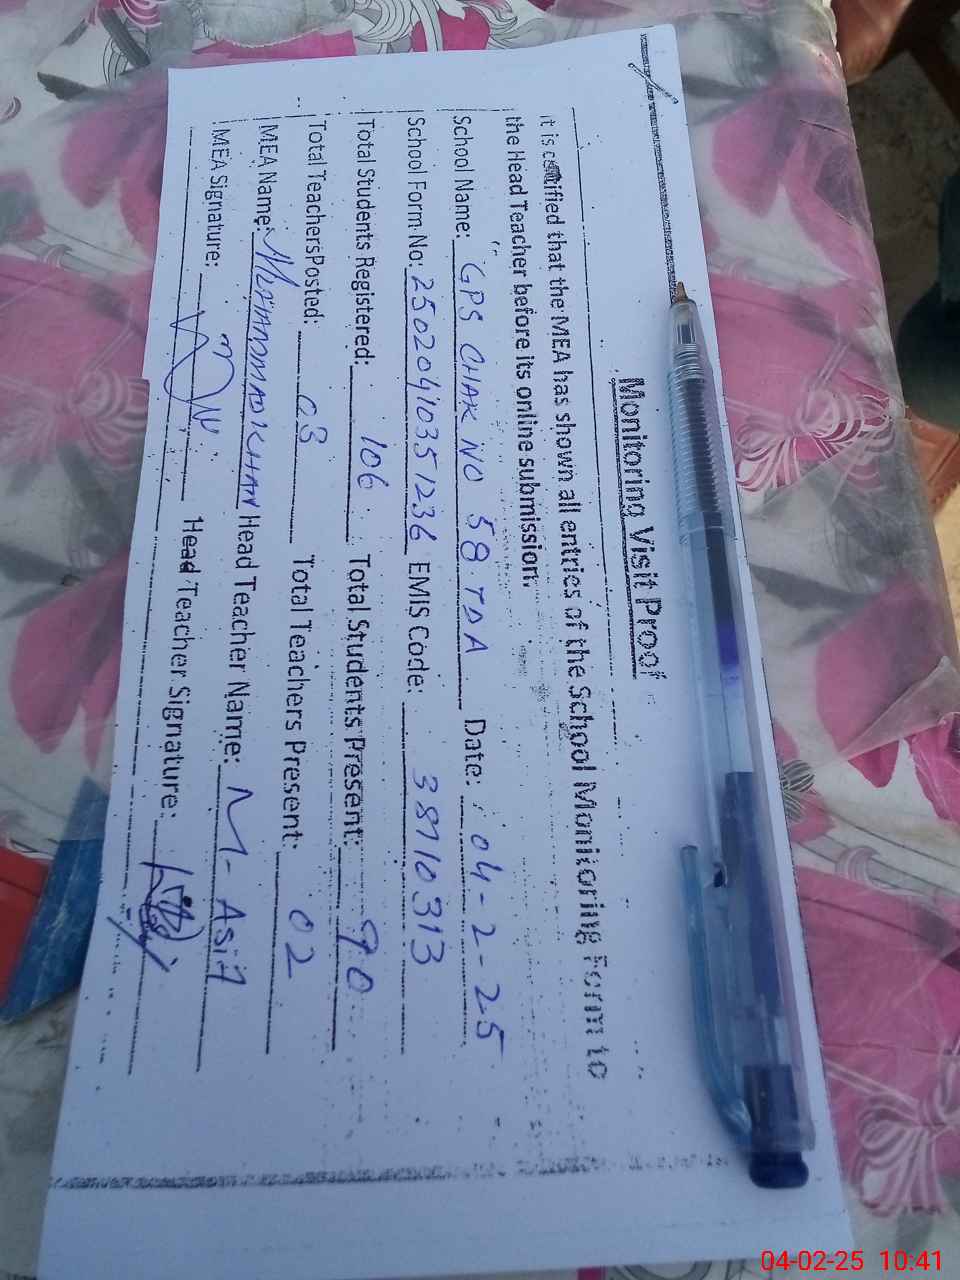 Monitoring Visit Proof
it is certified that the MEA has shown all entries of the School Monitoring Form to
the Head Teacher before its online submission.
School Name: GPS CHAK NO 58 TDA Date: 04-2-25
School Form No: 25020410351236 EMIS Code: 38710313
Total Students Registered: 106 Total Students Present: 90
Total Teachers Posted: 03 Total Teachers Present: 02
MEA Name: MUHAMMAD KHAN Head Teacher Name: M-Asif
MEA Signature: Head Teacher Signature:
04-02-25 10:41